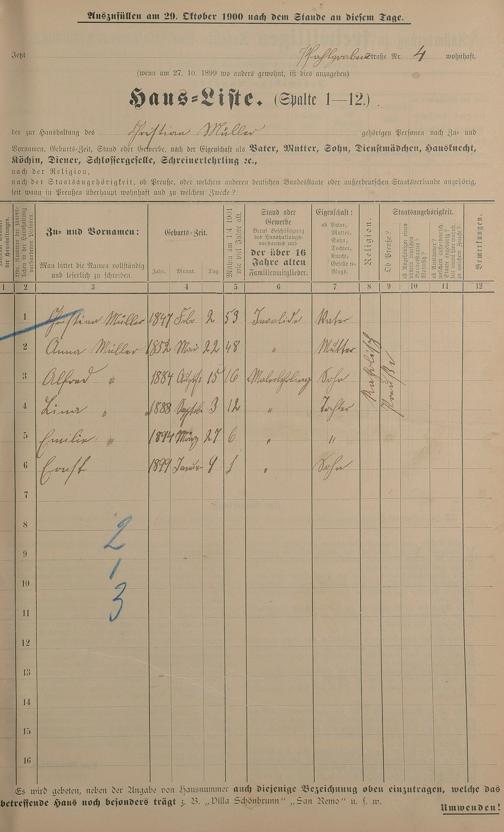 Auszufüllen am 29. Oktober 1900 nach dem Stande an diesem Tage.
Jetzt Pfahlgraben Straße Nr. 4 wohnhaft.
(wenn am 27. 10. 1899 wo anders gewohnt, ist dies anzugeben)
Haus=Liste. (Spalte 1—12.)
der zur Haushaltung des Christian Müller gehörigen Personen nach Zu= und
Vornamen, Geburts=Zeit, Stand oder Gewerbe, nach der Eigenschaft als Vater, Mutter, Sohn, Dienstmädchen, Hausknecht,
Köchin, Diener, Schlossergeselle, Schreinerlehrling ꝛc.,
nach der Religion,
nach der Staatsangehörigkeit, ob Preuße, oder welchem anderen deutschen Bundesstaate oder außerdeutschen Staatsverbande angehörig,
seit wann in Preußen überhaupt wohnhaft und zu welchem Zwecke?
Zu= und Vornamen:
Man bittet die Namen vollständig und leserlich zu schreiben.
Geburts=Zeit.
Jahr. Monat. Tag
Mithin am 1/4 1901 wie viel Jahre alt.
Stand oder Gewerbe
der über 16 Jahre alten Familienmitglieder.
Eigenschaft:
ob Vater, Mutter, Sohn, Tochter, Knecht, Magd, Geselle u=
Religion.
Staatsangehörigkeit.
Ob Preuße?
Bemerkungen.
1 2 3 4 5 6 7 8 9 10 11 12
1 Christian Müller 1847 Feb 2 53 Invalide Vater
2 Anna Müller 1852 Mai 22 48 " Mutter
3 Alfred " 1884 15 16 Sohn
4 Lina " 1888 Septb 3 12 " Tochter
5 Emilie " 1894 März 27 6 " "
6 Ernst 1899 Januar 4 1 " Sohn
Katholisch
Preuße
7
8
9
10
11
12
13
14
15
16
2
1
3
Es wird gebeten, neben der Angabe von Hausnummer auch diejenige Bezeichnung oben einzutragen, welche das
betreffende Haus noch besonders trägt z. B. „Villa Schönbrunn" „San Remo" u. s. w.
Umwenden!